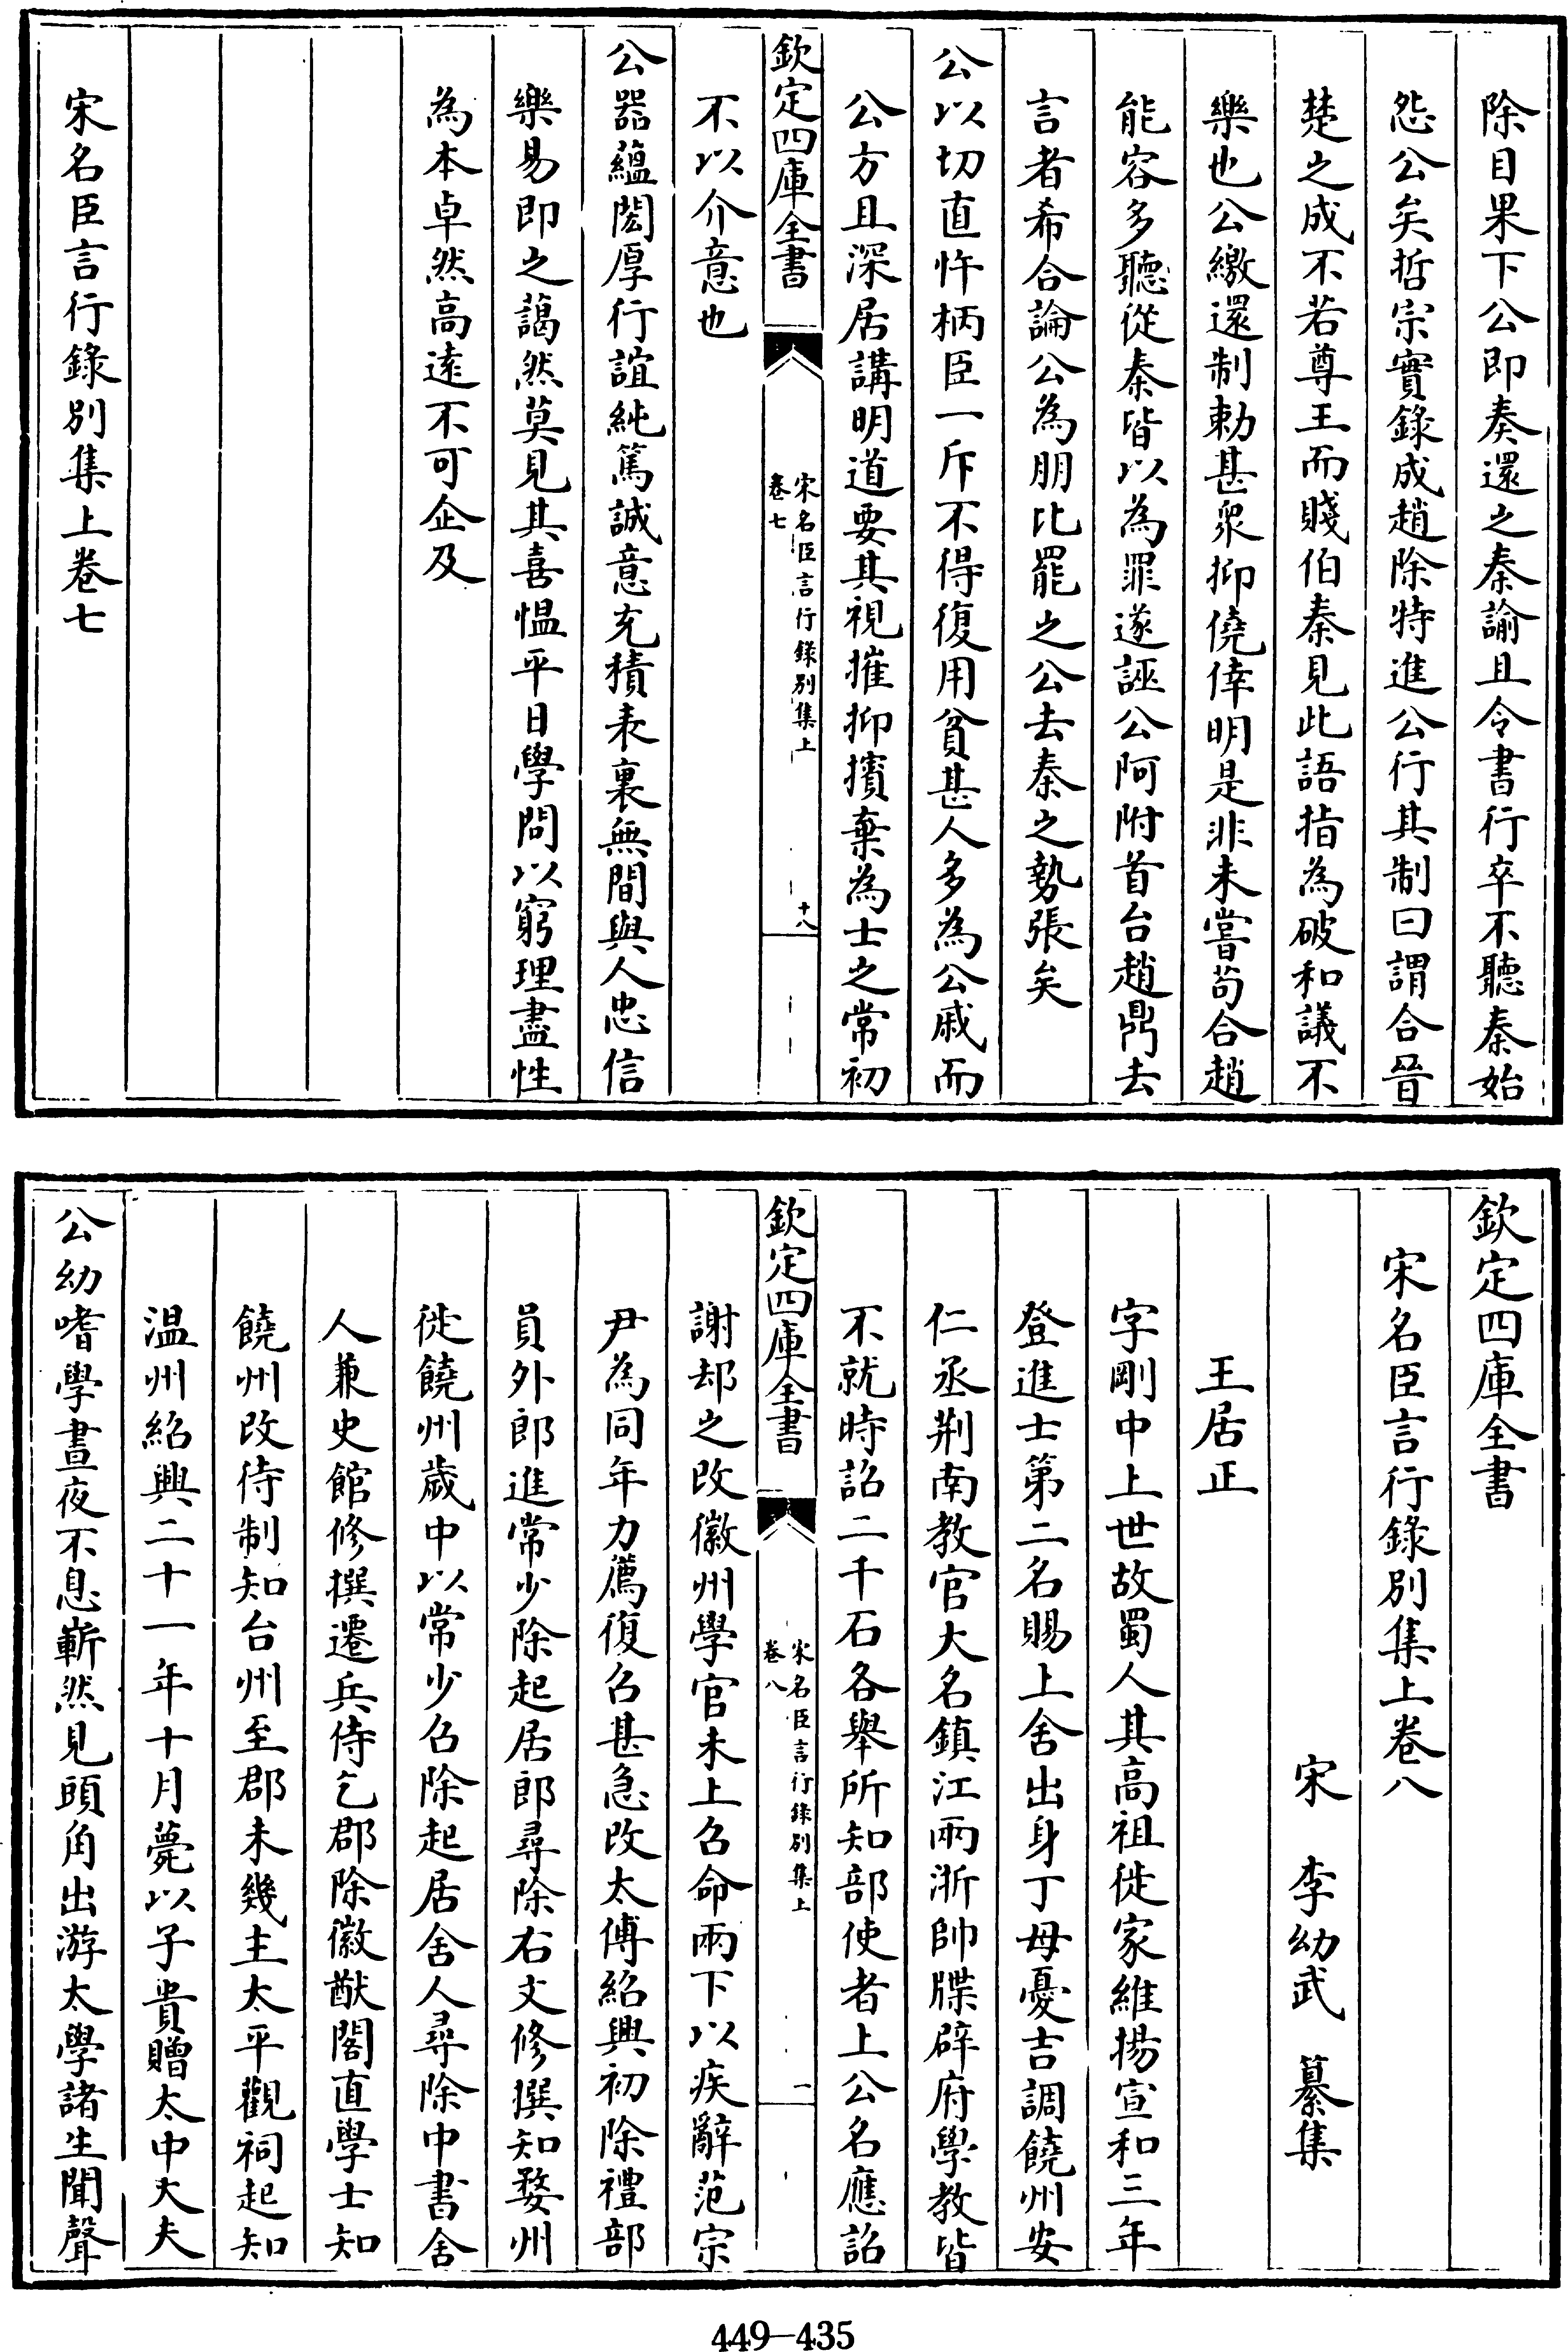 除目果下公即奏還之秦諭且令書行卒不聽秦始
怨公矣哲宗實錄成趙除特進公行其制曰謂合晉
楚之成不若尊王而賤伯秦見此語指為破和議不
樂也公繳還制勅甚衆抑僥倖明是非未嘗苟合趙
能容多聽從秦皆以為罪遂誣公阿附首台趙鼎去
言者希合論公為朋比罷之公去秦之勢張矣
公以切直忤柄臣一斥不得復用貧甚人多為公戚而
公方且深居講明道要其視摧抑擯棄為士之常初
欽定四庫全書
宋名臣言行錄別集上
卷七
十八
不以介意也
公器蘊閎厚行誼純篤誠意充積表裏無間與人忠信
樂易即之藹然莫見其喜愠平日學問以窮理盡性
為本卓然高逺不可企及
宋名臣言行錄別集上卷七
欽定四庫全書
宋名臣言行錄別集上卷八
宋 李幼武 纂集
王居正
字剛中上世故蜀人其高祖徙家維揚宣和三年
登進士第二名賜上舍出身丁母憂吉調饒州安
仁丞荆南教官大名鎮江兩浙帥牒辟府學教皆
不就時詔二千石各舉所知部使者上公名應詔
欽定四庫全書
宋名臣言行錄別集上
卷八
一
謝却之改徽州學官未上召命兩下以疾辭范宗
尹為同年力薦復召甚急改太傅紹興初除禮部
員外郎進常少除起居郎尋除右文修撰知婺州
徙饒州歲中以常少召除起居舍人尋除中書舍
人兼史館修撰遷兵侍乞郡除徽猷閣直學士知
饒州改待制知台州至郡未幾主太平觀祠起知
温州紹興二十一年十月薨以子貴贈太中大夫
公幼嗜學晝夜不息嶄然見頭角出游太學諸生聞聲
449-435